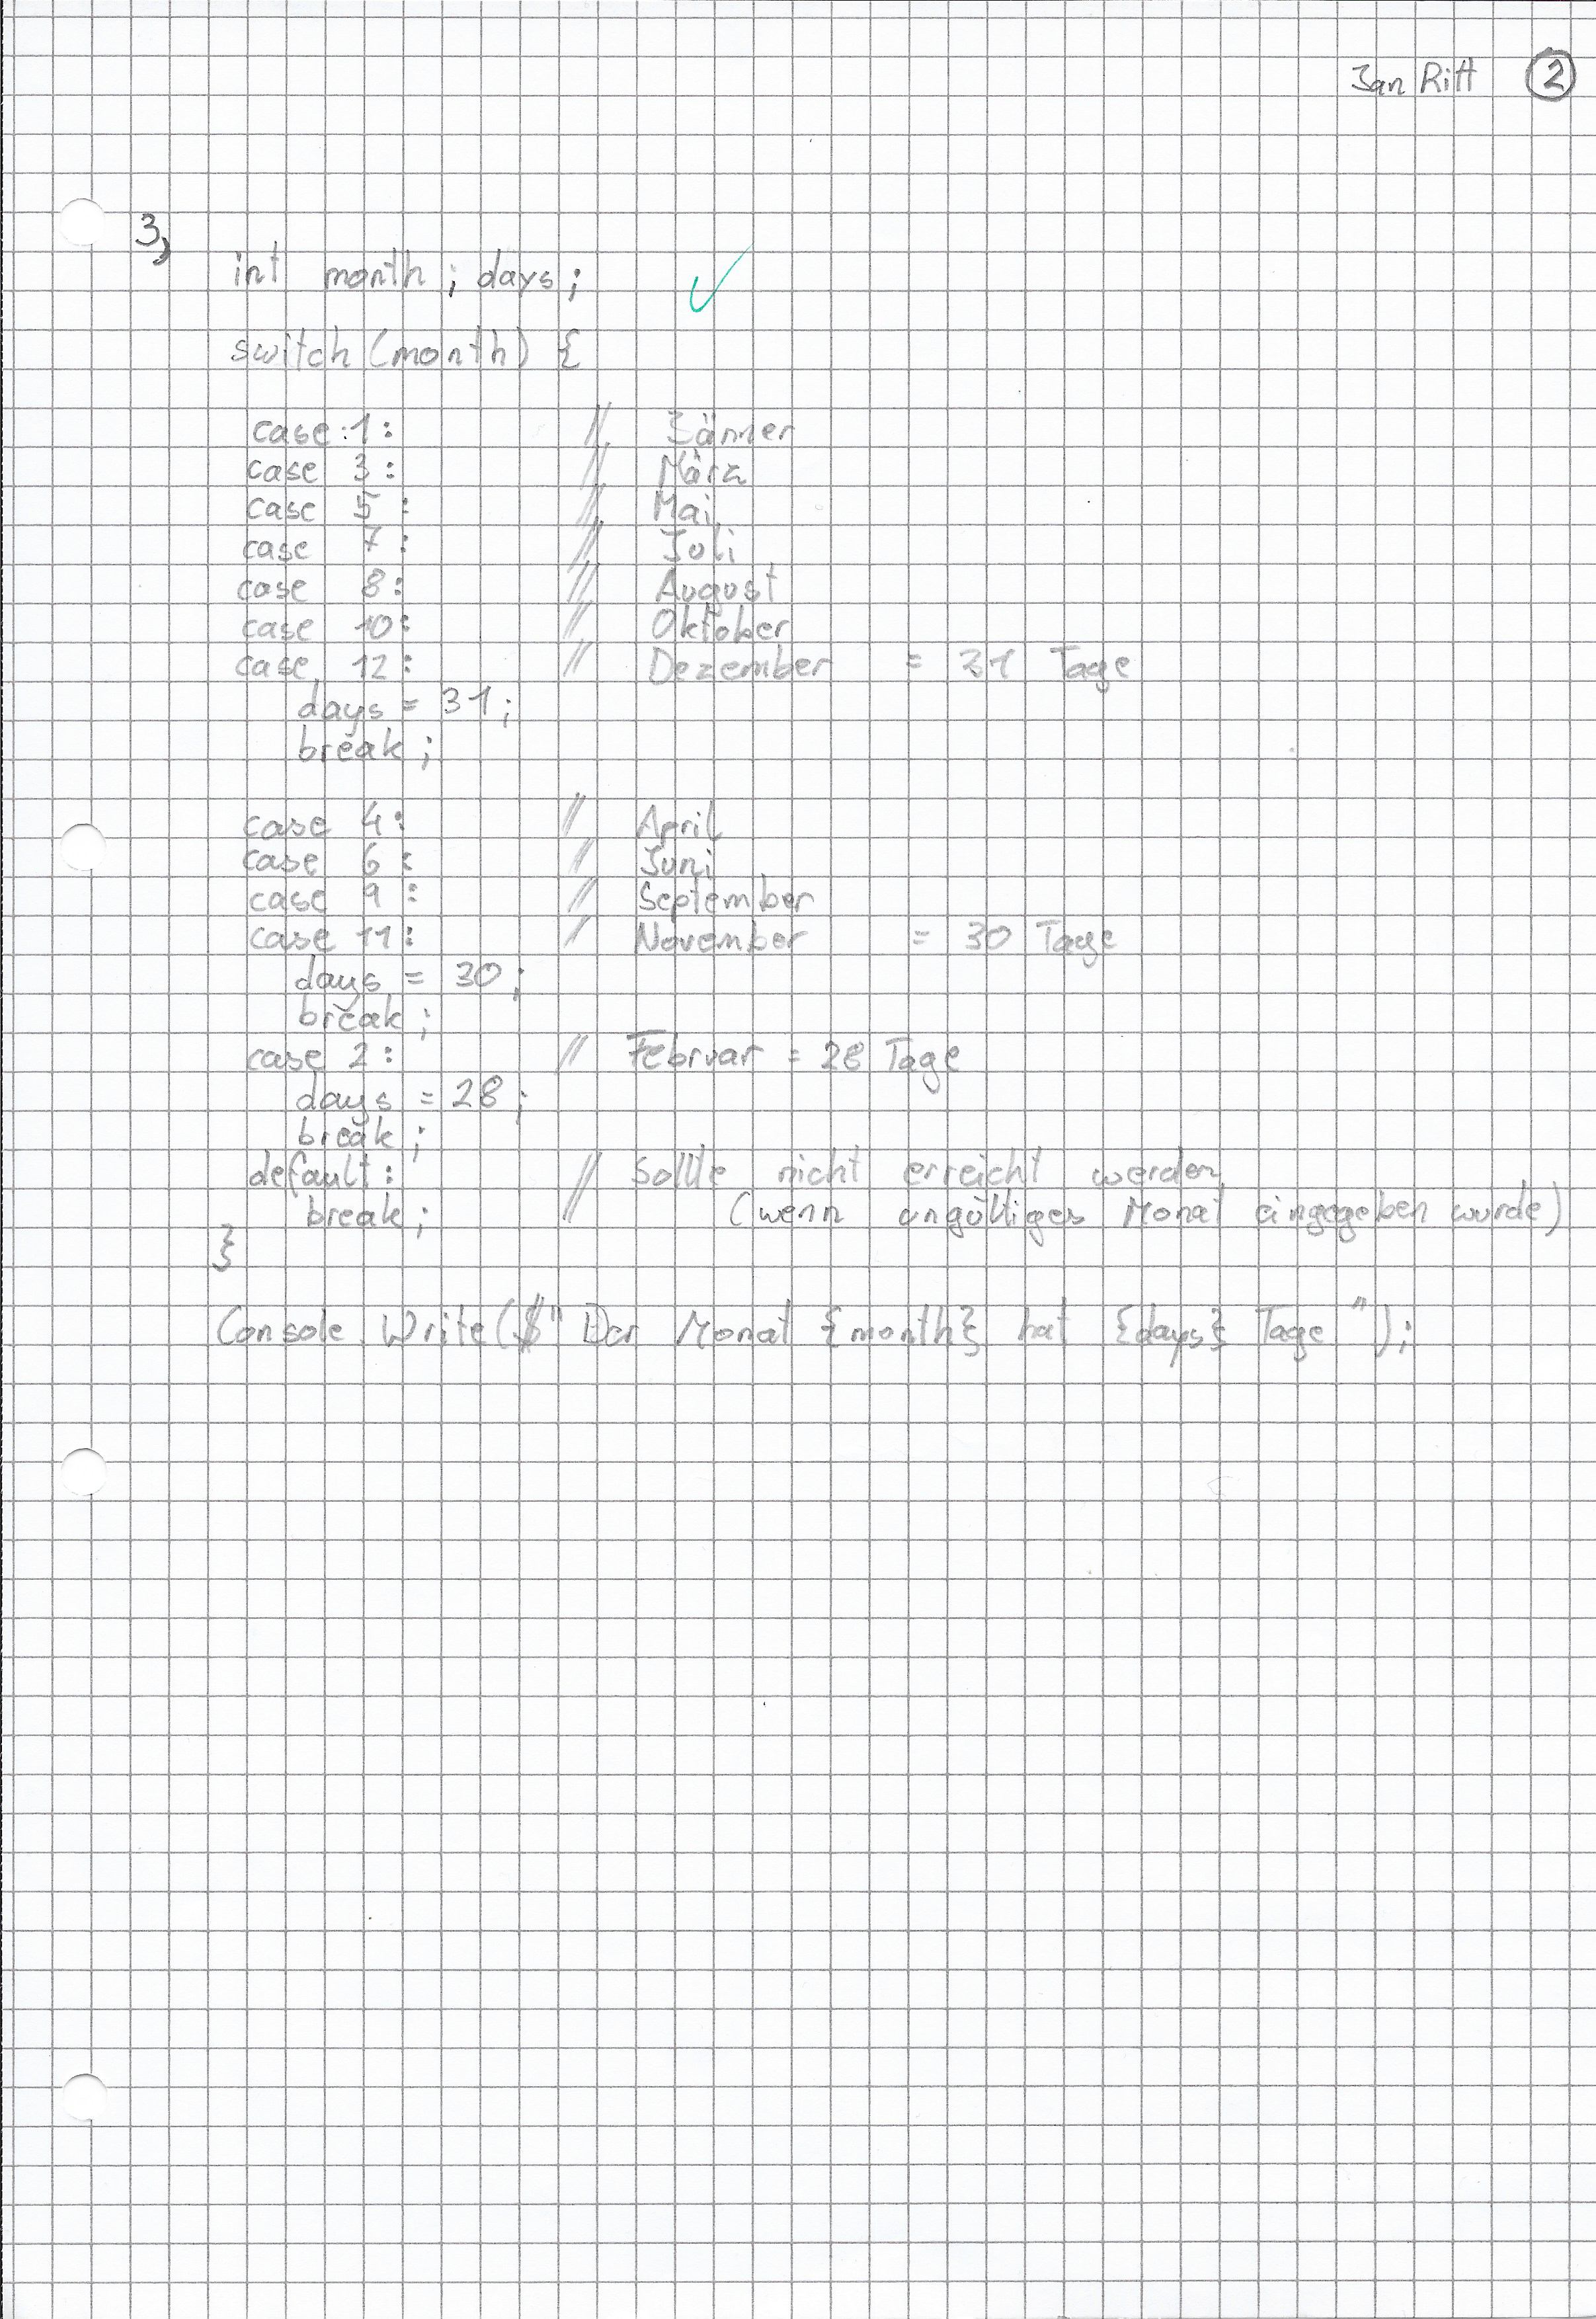 Jan Ritt 2
3,
int month ; days ;
switch (month) {
case 1: // Jänner
case 3: // März
case 5: // Mai
case 7: // Juli
case 8: // August
case 10: // Oktober
case 12: // Dezember = 31 Tage
days = 31;
break;
case 4: // April
case 6: // Juni
case 9: // September
case 11: // November = 30 Tage
days = 30;
break;
case 2: // Februar = 28 Tage
days = 28;
break;
default: // Sollte nicht erreicht werden
break; // (wenn ungültiges Monat eingegeben wurde)
}
Console.Write($"Der Monat {month} hat {days} Tage");